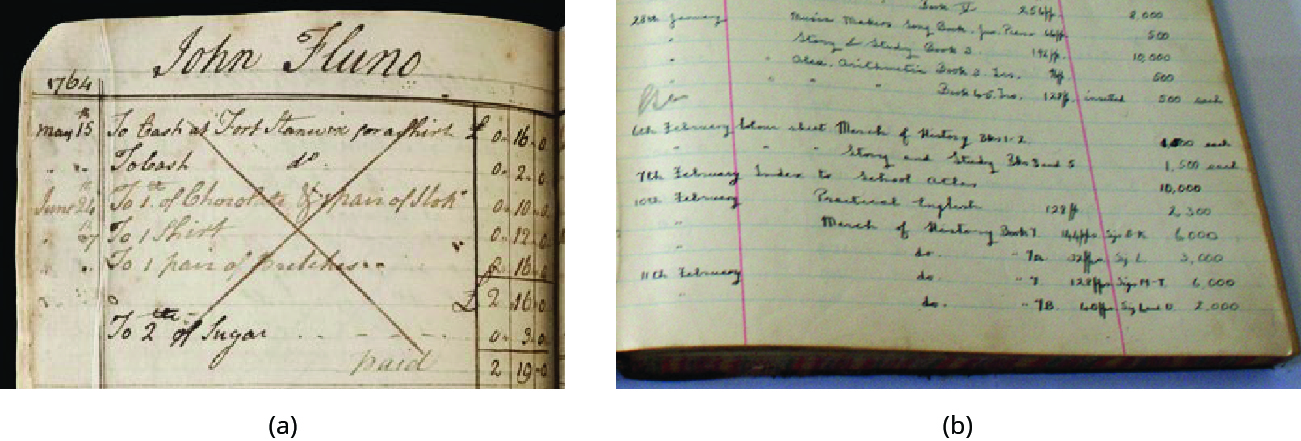 John Fluno
1764
May 15th To Cash at Fort Stanwix for a Shirt £ 0 - 16 - 0
" " To Cash do 0 - 2 - 0
June 24th To 1 of Chocolate & 1 pair of 0 - 10 - 0
To 1 Shirt 0 - 12 - 0
" " To 1 pair of Britches 16
£ 2 16 - 0
To 2 of Sugar 0 - 3 - 0
paid 2 19 - 0
(a)
Book V. 256pp.
28th January Music Makers Song Book. pps. 2,000
" Story & Study Book 3. 500
" " 192pp. 10,000
" Arithmetic Book 3. 500
Book 128pp. inserted 500 each
6th February Colour sheet March of History Bks 1-2. each
" " Story and Study Bks 3 and 5 1,500 each
7th February Index to School Atlas 10,000
10th February Practical English 128pp 2,300
" March of History Book 7. 6,000
" do. " 7A 3,000
11th February do. " 7 128pps Sigs M-T. 6,000
" do. " 7B. 2,000
(b)